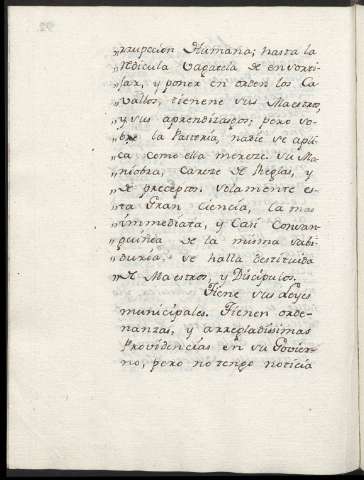 „rrupcion Humana; hasta la
„Redicula bagatela de ensorti-
„jar, y poner en orden los Ca-
„vallos, tienene sus Maestros,
„y sus aprendizages; pero so-
„bre la Pastoría, nadie se apli-
„ca como ella mereze. Su Ma-
„niobra, carece de Reglas, y
„de preceptos. Solamente es-
„ta Gran Ciencia, la mas
„immediata, y Casi Consan-
„guinea de la misma Sabi-
„duria, se halla destituida
„de Maestros, y Discipulos.
Tiene sus Leyes
municipales. Tienen orde-
nanzas, y arregladissimas
Providencias en su Govier-
no, pero no tengo noticia